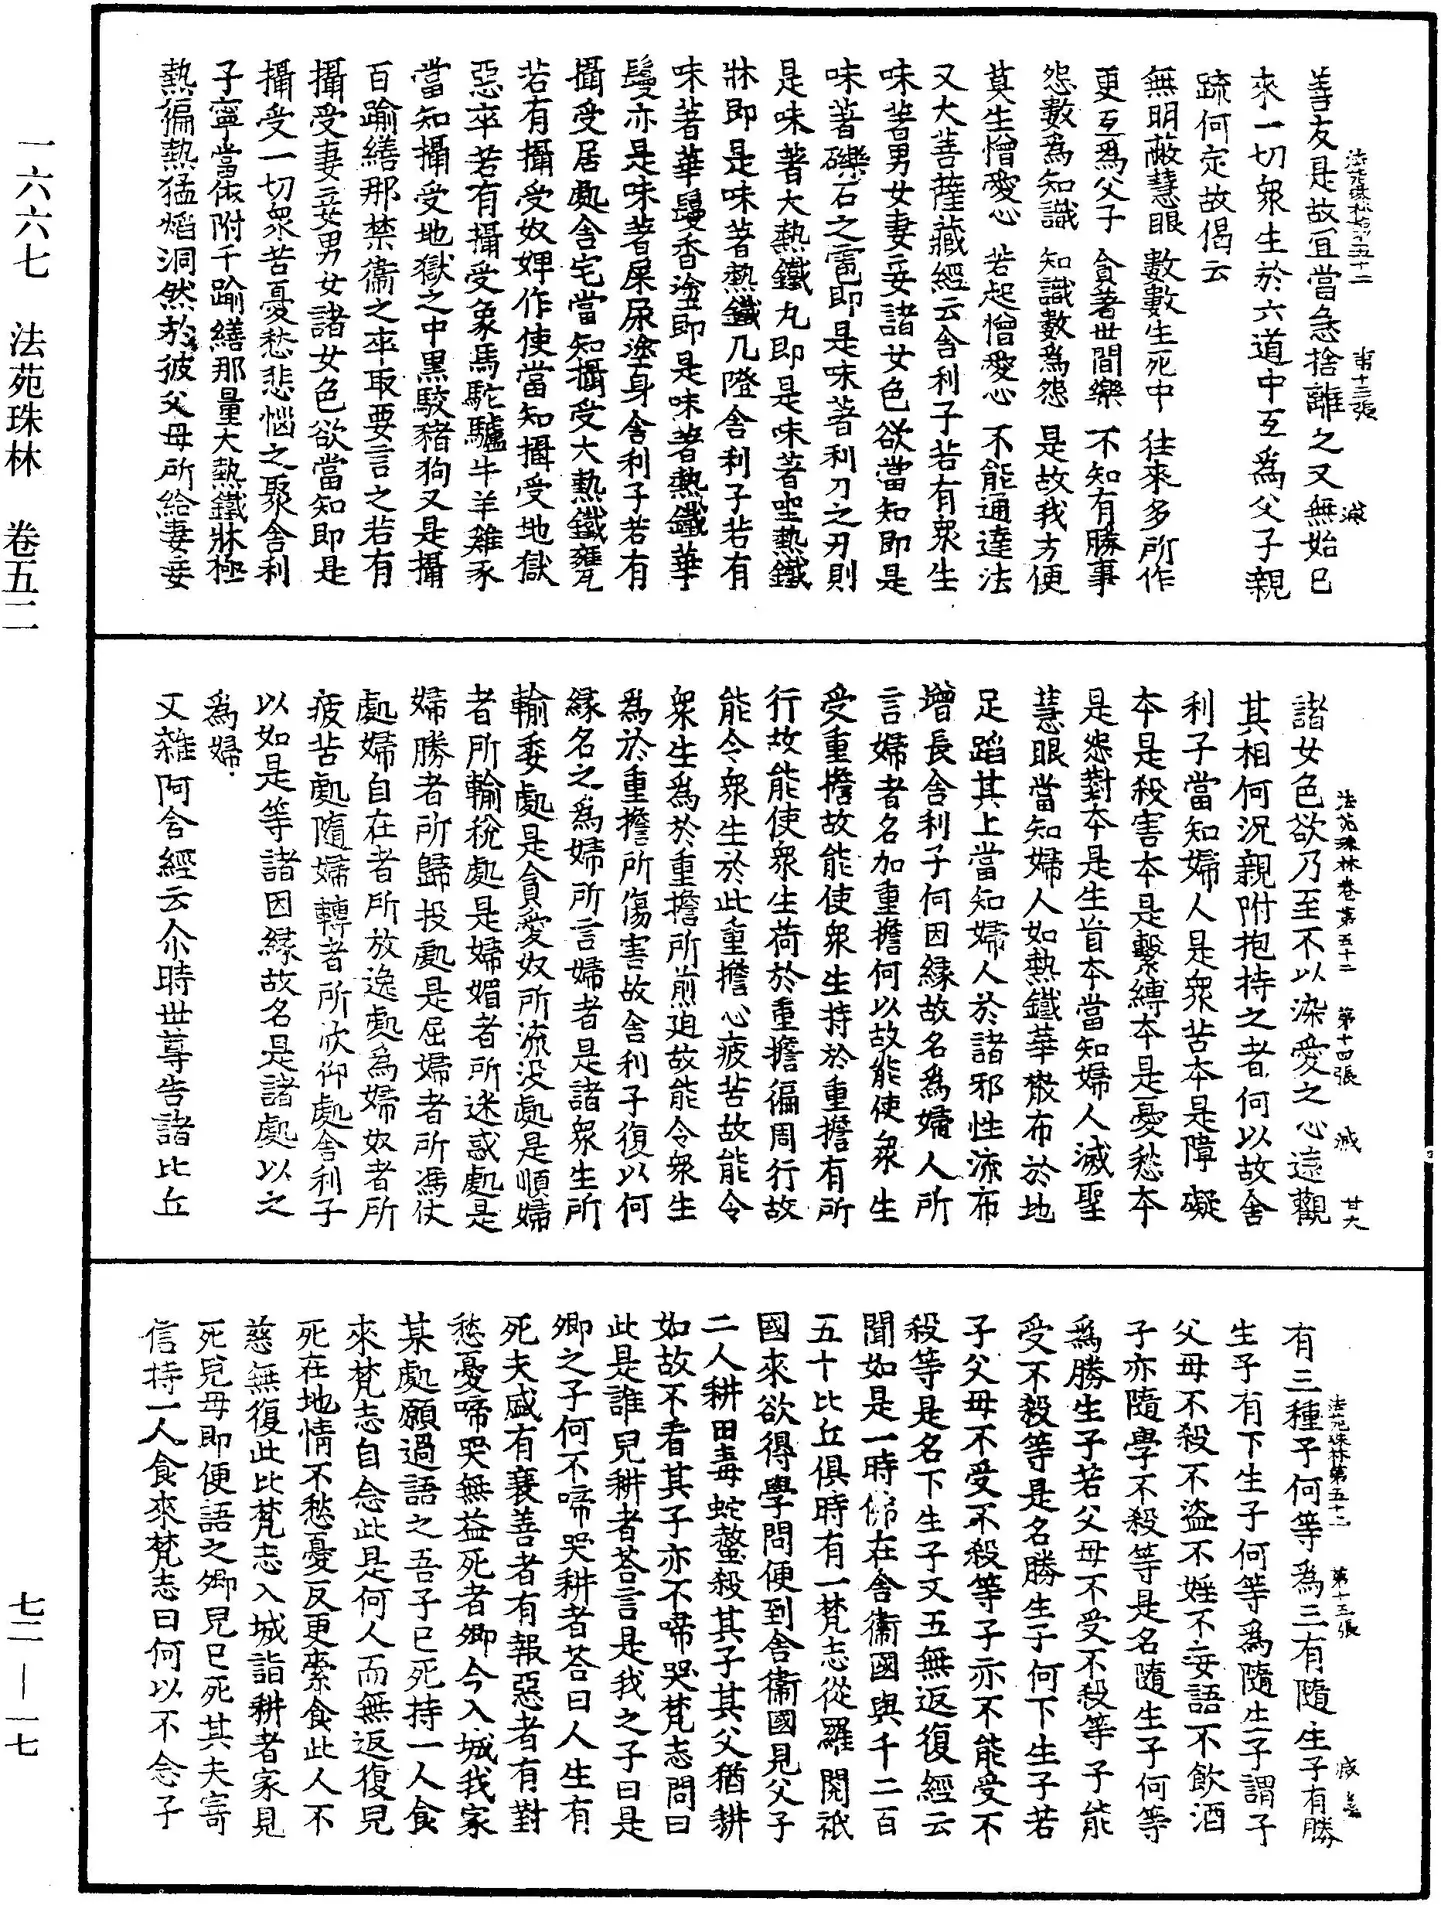 一六六七 法苑珠林 卷五二
七二—一七
善友是故宜當急捨離之又無始已
來一切衆生於六道中互爲父子親
踈何定故偈云
無明蔽慧眼 數數生死中 往來多所作
更互爲父子 貪著世間樂 不知有勝事
怨數爲知識 知識數爲怨 是故我方便
莫生憎愛心 若起憎愛心 不能通達法
又大菩薩藏經云舍利子若有衆生
味著男女妻妾諸女色欲當知即是
味著礫石之雹即是味著利刀之刃則
是味著大熱鐵丸即是味著坐熱鐵
牀即是味著熱鐵几隥舍利子若有
味著華鬘香塗即是味著熱鐵華
鬘亦是味著屎尿塗身舍利子若有
攝受居處舍宅當知攝受大熱鐵甕瓦
若有攝受奴婢作使當知攝受地獄
惡卒若有攝受象馬駝驢牛羊雞豕
當知攝受地獄之中黑駮豬狗又是攝
百踰繕那禁衞之卒取要言之若有
攝受妻妾男女諸女色欲當知即是
攝受一切衆苦憂愁悲惱之聚舍利
子寧當依附千踰繕那量大熱鐵牀極
熱徧熱猛焰洞然於彼父母所給妻妾
法苑珠林卷第五十二 第十四張
諸女色欲乃至不以染愛之心遠觀
其相何況親附抱持之者何以故舍
利子當知婦人是衆苦本是障礙
本是殺害本是繫縛本是憂愁本
是怨對本是生盲本當知婦人滅聖
慧眼當知婦人如熱鐵華散布於地
足蹈其上當知婦人於諸邪性流布
增長舍利子何因緣故名爲婦人所
言婦者名加重擔何以故能使衆生
受重擔故能使衆生持於重擔有所
行故能使衆生荷於重擔徧周行故
能令衆生於此重擔心疲苦故能令
衆生爲於重擔所煎迫故能令衆生
爲於重擔所傷害故舍利子復以何
緣名之爲婦所言婦者是諸衆生所
輸委處是貪愛奴所流没處是順婦
者所輸稅處是婦媚者所迷惑處是
婦勝者所歸投處是屈婦者所馮仗
處婦自在者所放逸處爲婦奴者所
疲苦處隨婦轉者所欣仰處舍利子
以如是等諸因緣故名是諸處以之
爲婦
又雜阿含經云尒時世尊告諸比丘
法苑珠林第五十二 第十五張
有三種子何等爲三有隨生子有勝
生子有下生子何等爲隨生子謂子
父母不殺不盜不婬不妄語不飲酒
子亦隨學不殺等是名隨生子何等
爲勝生子若父母不受不殺等子能
受不殺等是名勝生子何下生子若
子父母不受不殺等子亦不能受不
殺等是名下生子又五無返復經云
聞如是一時佛在舍衞國與千二百
五十比丘俱時有一梵志從羅閱祇
國來欲得學問便到舍衞國見父子
二人耕田毒蛇螫殺其子其父猶耕
如故不看其子亦不啼哭梵志問曰
此是誰兒耕者荅言是我之子曰是
卿之子何不啼哭耕者荅曰人生有
死夫盛有衰善者有報惡者有對
愁憂啼哭無益死者卿今入城我家
某處願過語之吾子已死持一人食
來梵志自念此是何人而無返復兒
死在地情不愁憂反更索食此人不
慈無復此比梵志入城詣耕者家見
死兒母即便語之卿兒已死其夫寄
信持一人食來梵志曰何以不念子